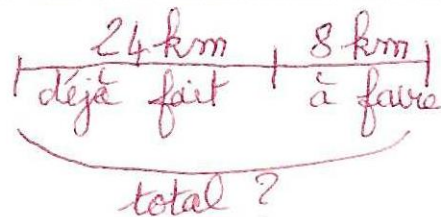 24 km 8 km
déjà fait à faire
total ?